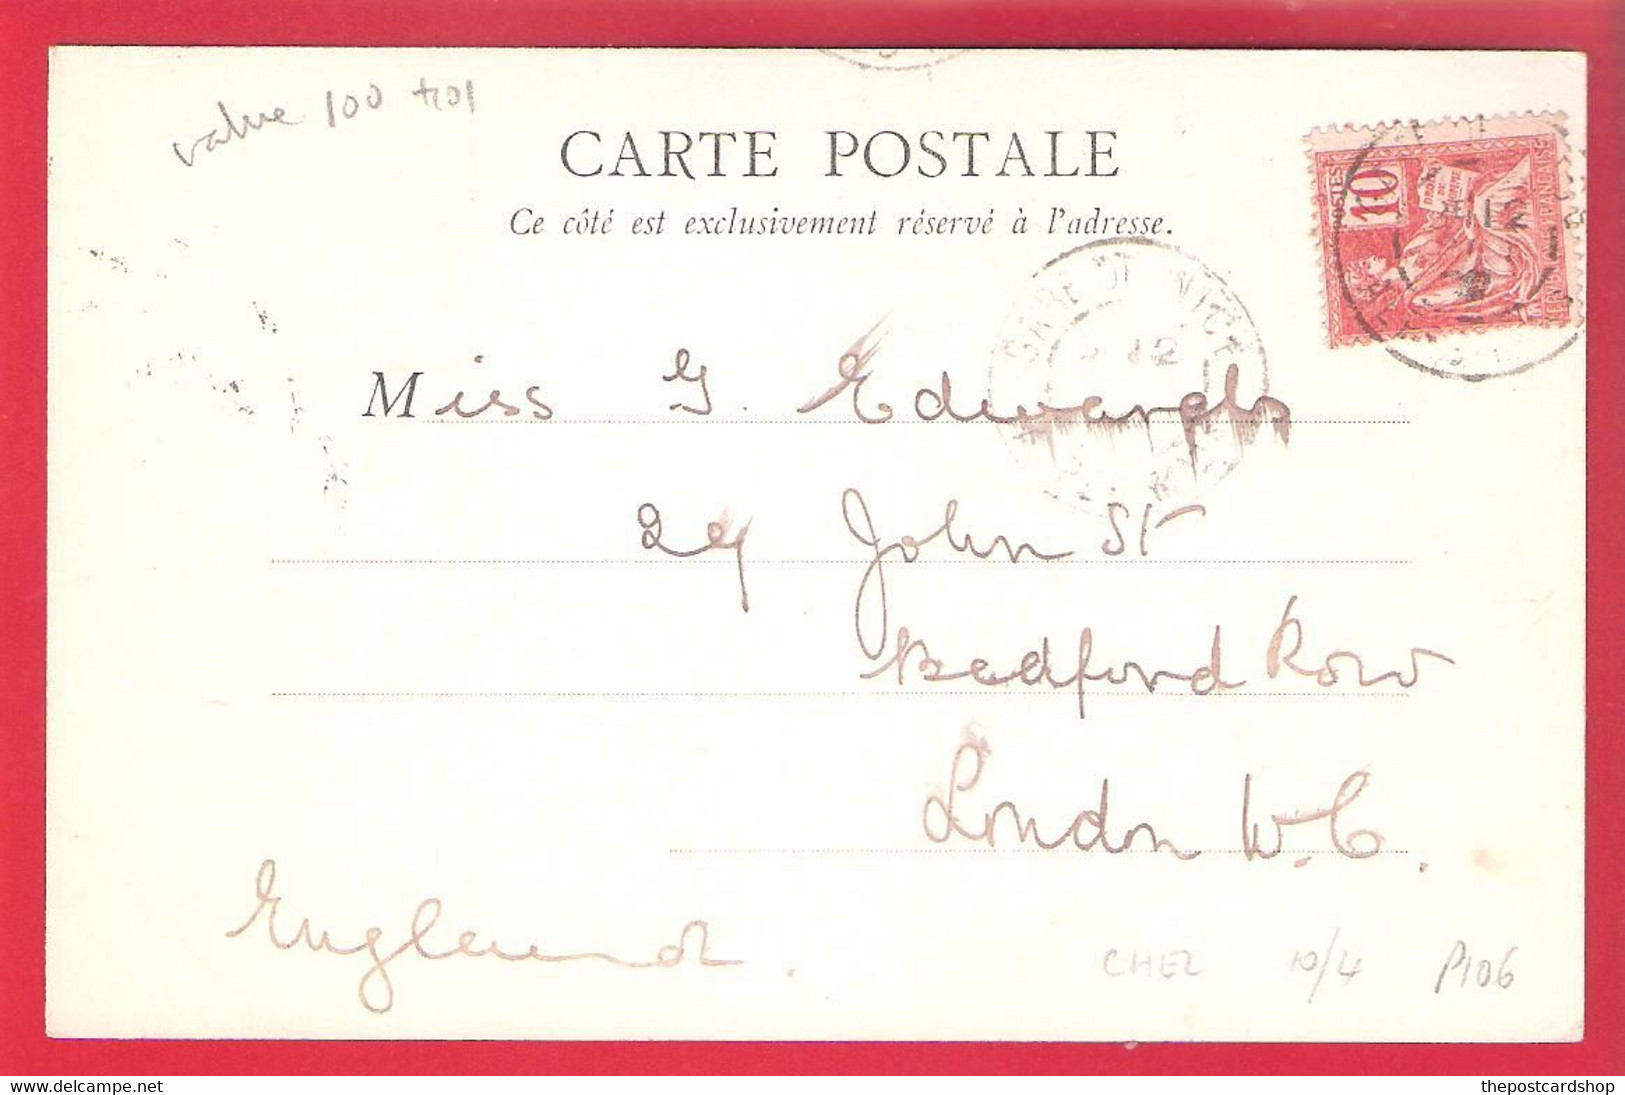 value 100
CARTE POSTALE
Ce côté est exclusivement réservé à l'adresse.
POSTES
10
DROITS DE L'HOMME
GARE DE NICE
12
12
Miss G. Edwards
29 John St
Bedford Row
London W.C.
England.
CHEZ 10/4 P106
www.delcampe.net
thepostcardshop